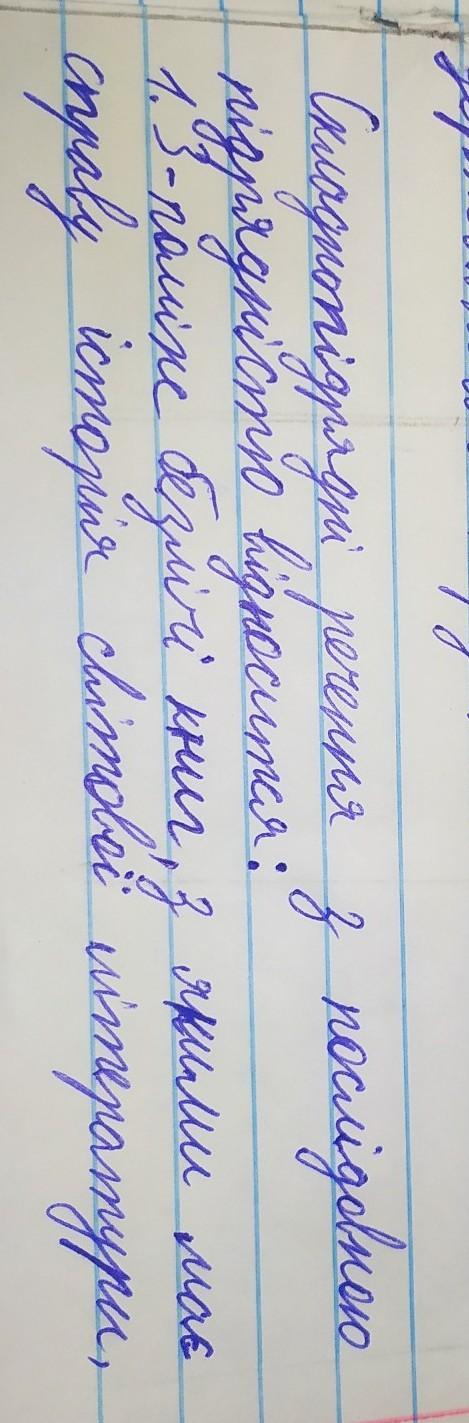 Складнопідрядні речення з послідовною
підрядністю відноситься:
1. З-поміж безлічі книг, з якими має
справу історія світової літератури,